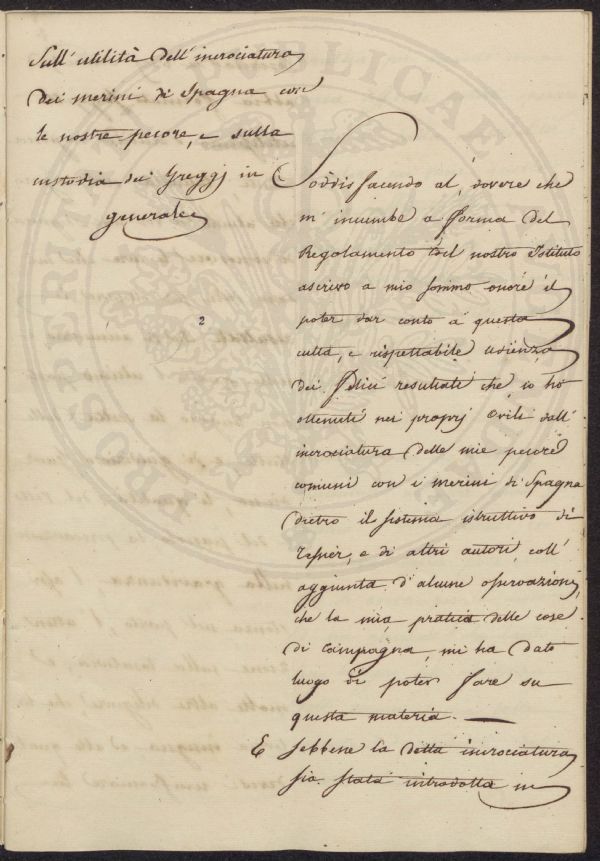 Sull' utilità dell' incrociatura
dei merini di Spagna con
le nostre pecore, e sulla
custodia dei Greggj in
generale
Soddisfacendo al dovere che
m' incumbe a forma del
Regolamento del nostro Istituto
ascrivo a mio sommo onore il
poter dar conto a questa
culta, e rispettabile udienza
dei felici resultati che io hò
ottenuti nei proprj Ovili dall'
incrociatura delle mie pecore
comuni con i merini di Spagna
dietro il sistema istruttivo di
Tesier, e di altri autori coll'
aggiunta d' alcune osservazioni,
che la mia pratica delle cose
di campagna, mi ha dato
luogo di poter fare su
questa materia. —
E sebbene la detta incrociatura
sia stata introdotta in
2